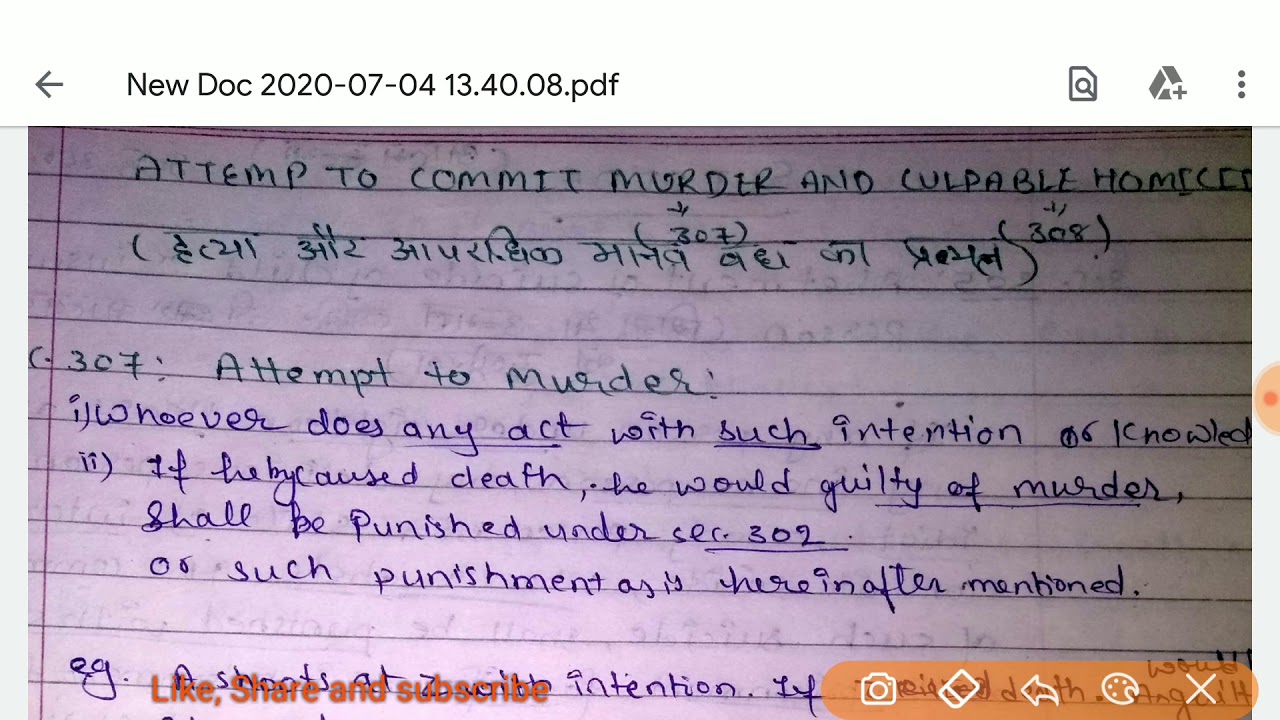 New Doc 2020-07-04 13.40.08.pdf
ATTEMP TO COMMIT MURDER AND CULPABLE HOMICID
(307) (308)
(हत्या और आपराधिक मानव वध का प्रयत्न)
307: Attempt to Murder:
i) Whoever does any act with such intention or Knowled
ii) If hebycaused death, he would guilty of murder,
Shall be Punished under sec. 302.
or such punishment as is hereinafter mentioned.
eg. A shoots at Z with intention. If death. would
Like, Share and subscribe